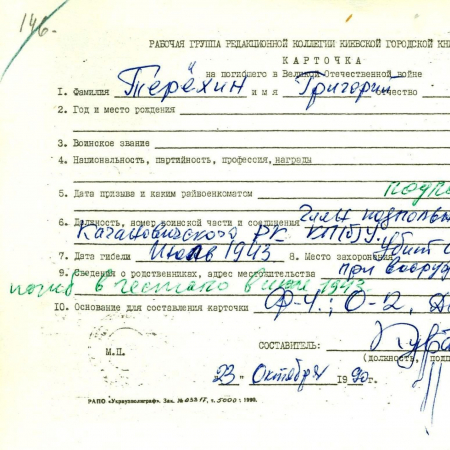 146.
РАБОЧАЯ ГРУППА РЕДАКЦИОННОЙ КОЛЛЕГИИ КИЕВСКОЙ ГОРОДСКОЙ КНИ
КАРТОЧКА
на погибшего в Великой Отечественной войне
1. Фамилия Терёхин имя Григорий отчество
2. Год и место рождения
3. Воинское звание
4. Национальность, партийность, профессия, награды
5. Дата призыва и каким райвоенкоматом подпо
6. Должность, номер воинской части и соединения Член подполь
РК КП(б)У. убит
7. Дата гибели Июль 1943 8. Место захоронения при
9. Сведения о родственниках, адрес местожительства
погиб в 1943.
10. Основание для составления карточки Ф-4.; О-2,
СОСТАВИТЕЛЬ:
М.П. (должность, подп
23 " Октября 1990г.
РАПО «Укрвузполиграф». Зак. № т. 5000: 1990.